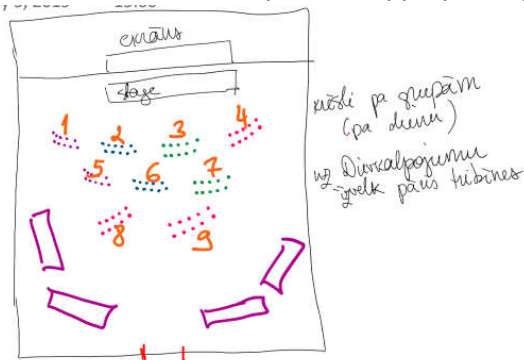 ekrāns
stage
1 2 3 4
5 6 7
8 9
krēsli pa grupām
(pa dienu)
uz Dievkalpojumu
izvelk pāris tribīnes